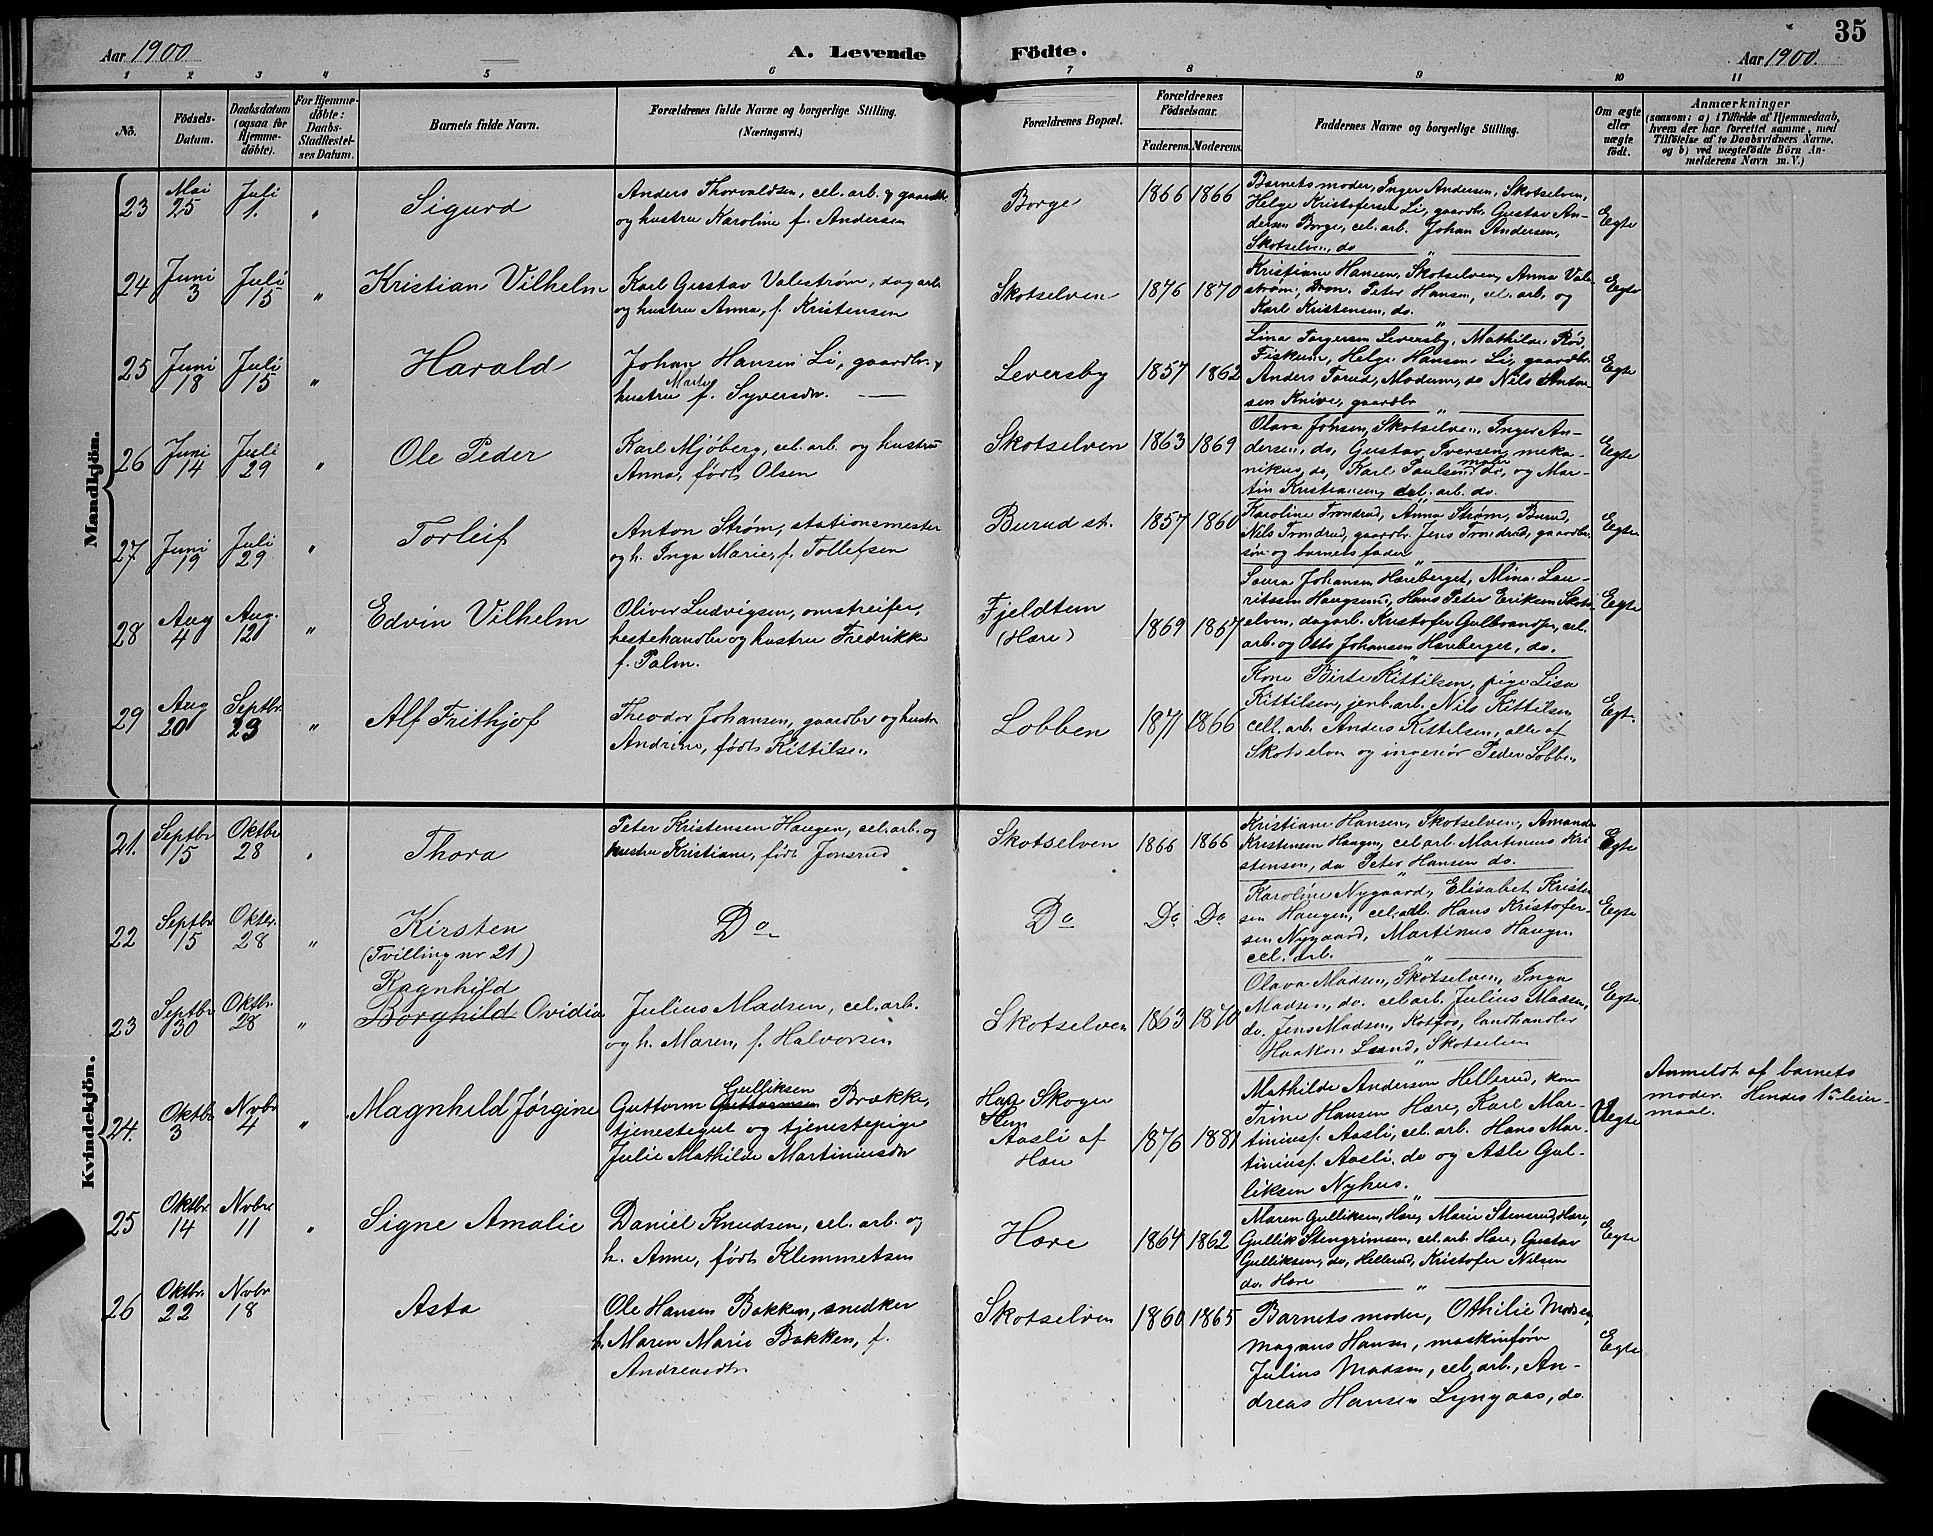 35
Aar 1900.
A. Levende Födte.
Aar 1900.
1 2 3 4 5 6 7 8 9 10 11
No.
Födsels-Datum.
Daabsdatum (ogsaa for Hjemme-döbte).
For Hjemme-döbte: Daabs-Stadfæstel-ses Datum.
Barnets fulde Navn.
Forældrenes fulde Navne og borgerlige Stilling. (Næringsvei.)
Forældrenes Bopæl.
Forældrenes Födselsaar.
Faderens. Moderens.
Faddernes Navne og borgerlige Stilling.
Om ægte eller uægte født.
Anmærkninger
(saasom: a) i Tilfælde af Hjemmedaab, hvem der har forrettet samme, med Tilføielse af to Daabsvidners Navne, og b) ved uægtefødte Börn An-melderens Navn m. V.)
Mandkjön.
23 Mai 25 Juli 1. " Sigurd
Anders Thorvaldsen, cel. arb. & gaardbr.
og hustru Karoline f. Andersen
Borge 1866 1866
Barnets moder, Inger Andersen, Skotselven,
Helge Kristofersen Li, gaardbr. Gustav An-
dersen Borge, cel. arb. Johan Andersen,
Skotselven, do
Egte
24 Juni 3 Juli 15 " Kristian Vilhelm
Karl Gustav Valestrøm, dagarb.
og hustru Anna, f. Kristensen
Skotselven 1876 1870
Kristiane Hansen, Skotselven, Anna Vale-
strøm, Drm. Peter Hansen, cel. arb. og
Karl Kristensen, do.
Egte
25 Juni 18 Juli 15 " Harald
Johan Hansen Li, gaardbr. &
hustru Marte f. Syversdtr.
Leversby 1857 1862
Lina Torgersen Leversby, Mathilde Rød,
Fiskum, Helge Hansen Li, gaardbr.
Anders Torud, Modum, do Nils Anton-
sen Knive, gaardbr
Egte
26 Juni 14 Juli 29 " Ole Peder
Karl Mjöberg, cel. arb. og hustru
Anna, født Olsen
Skotselven 1863 1869
Olava Johsen, Skotselven, Inger An-
dersen, do, Gustav Iversen, meka-
nikus, do, Karl Paulsen, maler do, og Mar-
tin Kristiansen, cel. arb. do.
Egte
27. Juni 19 Juli 29 " Torleif
Anton Strøm, stationsmester
og h. Inga Marie, f. Tollefsen
Burud st. 1857 1860
Karoline Trondrud, Anna Strøm, Burud,
Nils Trondrud, gaardbr. Jens Trondrud, gaardbr.
søn og barnets fader
Egte
28 Aug 4 Aug. 12 " Edvin Vilhelm
Oliver Ludvigsen, omstreifer,
hestehandler og hustru Fredrikke
f. Palm.
Fjeldtun
(Hære) 1869 1867
Laura Johansen Hareberget, Mina Lau-
ritssen Haugsund, Hans Peter Eriksen Skots-
elven, dagarb. Kristofer Gulbrandsen, cel.
arb. og Otto Johansen Hareberget, do.
Egte
29 Aug 20 Septbr. 23 " Alf Frithjof
Theodor Johansen, gaardbr og hustru
Andrine, født Kittilsen
Lobben 1871 1866
Kone Birte Kittilsen, pige Lisa
Kittilsen, jenb. arb. Nils Kittilsen
cell. arb. Anders Kittelsen, alle af
Skotselven og ingeniør Peder Lobben
Egt.
Kvindekjön.
21. Septbr 15 Oktbr 28 " Thora
Peter Kristensen Haugen, cel. arb. og
hustru Kristiane, født Jonsrud
Skotselven 1866 1866
Kristiane Hansen, Skotselven, Amanda
Kristensen Haugen, cel arb. Martinus Kri-
stensen, do Peter Hansen do.
Egte
22 Septbr 15 Oktbr. 28 " Kirsten
(Tvilling nr 21)
Do
Do Do Do
Karoline Nygaard, Elisabet Kristen-
sen Haugen, cel. arb. Hans Kristofer-
sen Nygaard, Martinus Haugen
cel. arb.
Egte
23 Septbr 30 Oktbr. 28 " Ragnhild
Borghild Ovidia
Julius Madsen, cel. arb.
og h. Maren, f. Halvorsen
Skotselven 1863 1870
Olava Madsen, Skotselven, Inga
Madsen, do. cel arb. Julius Madsen,
do, Jens Madsen, Kotfos, landhandler
Haakon Lund, Skotselven
Egte
24. Oktbr 3 Novbr 4 " Magnhild Jørgine
Guttorm Guttormsen Gulliksen Brække,
tjenestegut og tjenestepige
Julie Mathilde Martiniusdtr
Skoger
Aasli af
Hære 1876 1881
Mathilde Andersen Hellerud, kone
Trine Hansen Hære, Karl Mar-
tiniusf. Aasli, cel. arb. Hans Mar-
tiniusf. Aasli, do og Asle Gul-
liksen Nyhus.
Uegte
Anmeldt af barnets
moder. Hendes 1ste leier-
maal.
25 Oktbr. 14 Novbr 11 " Signe Amalie
Daniel Knudsen, cel. arb. og
h. Anne, født Klemmetsen
Hære 1864 1862
Maren Gulliksen, Hære, Marie Stensrud, Hære,
Gullik Stengrimsen, cel. arb Hære, Gustav
Gulliksen, do, Hellerud, Kristofer Nilsen
do. Hære
Egte
26 Oktbr. 22 Novbr 18 Asta
Ole Hansen Bakken, snedker
h. Maren Marie Bakken, f.
Andreasdtr
Skotselven 1860 1865
Barnets moder, Othilie Madsen,
Magnus Hansen, maskinfører
Julius Madsen, cel. arb., An-
dreas Hansen Lyngaas, do
Egte